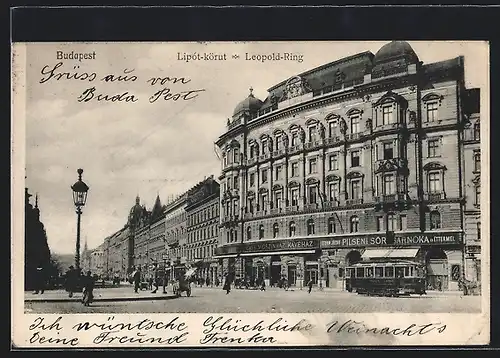 Budapest
Lipót-körut Leopold-Ring
Grüss aus von
Buda Pest
KÁVÉHÁZ PILSENI SÖR CSARNOKA és ÉTTEREM
Ich wüntsche Glüchliche Weinachts
Deine Freund Frenka